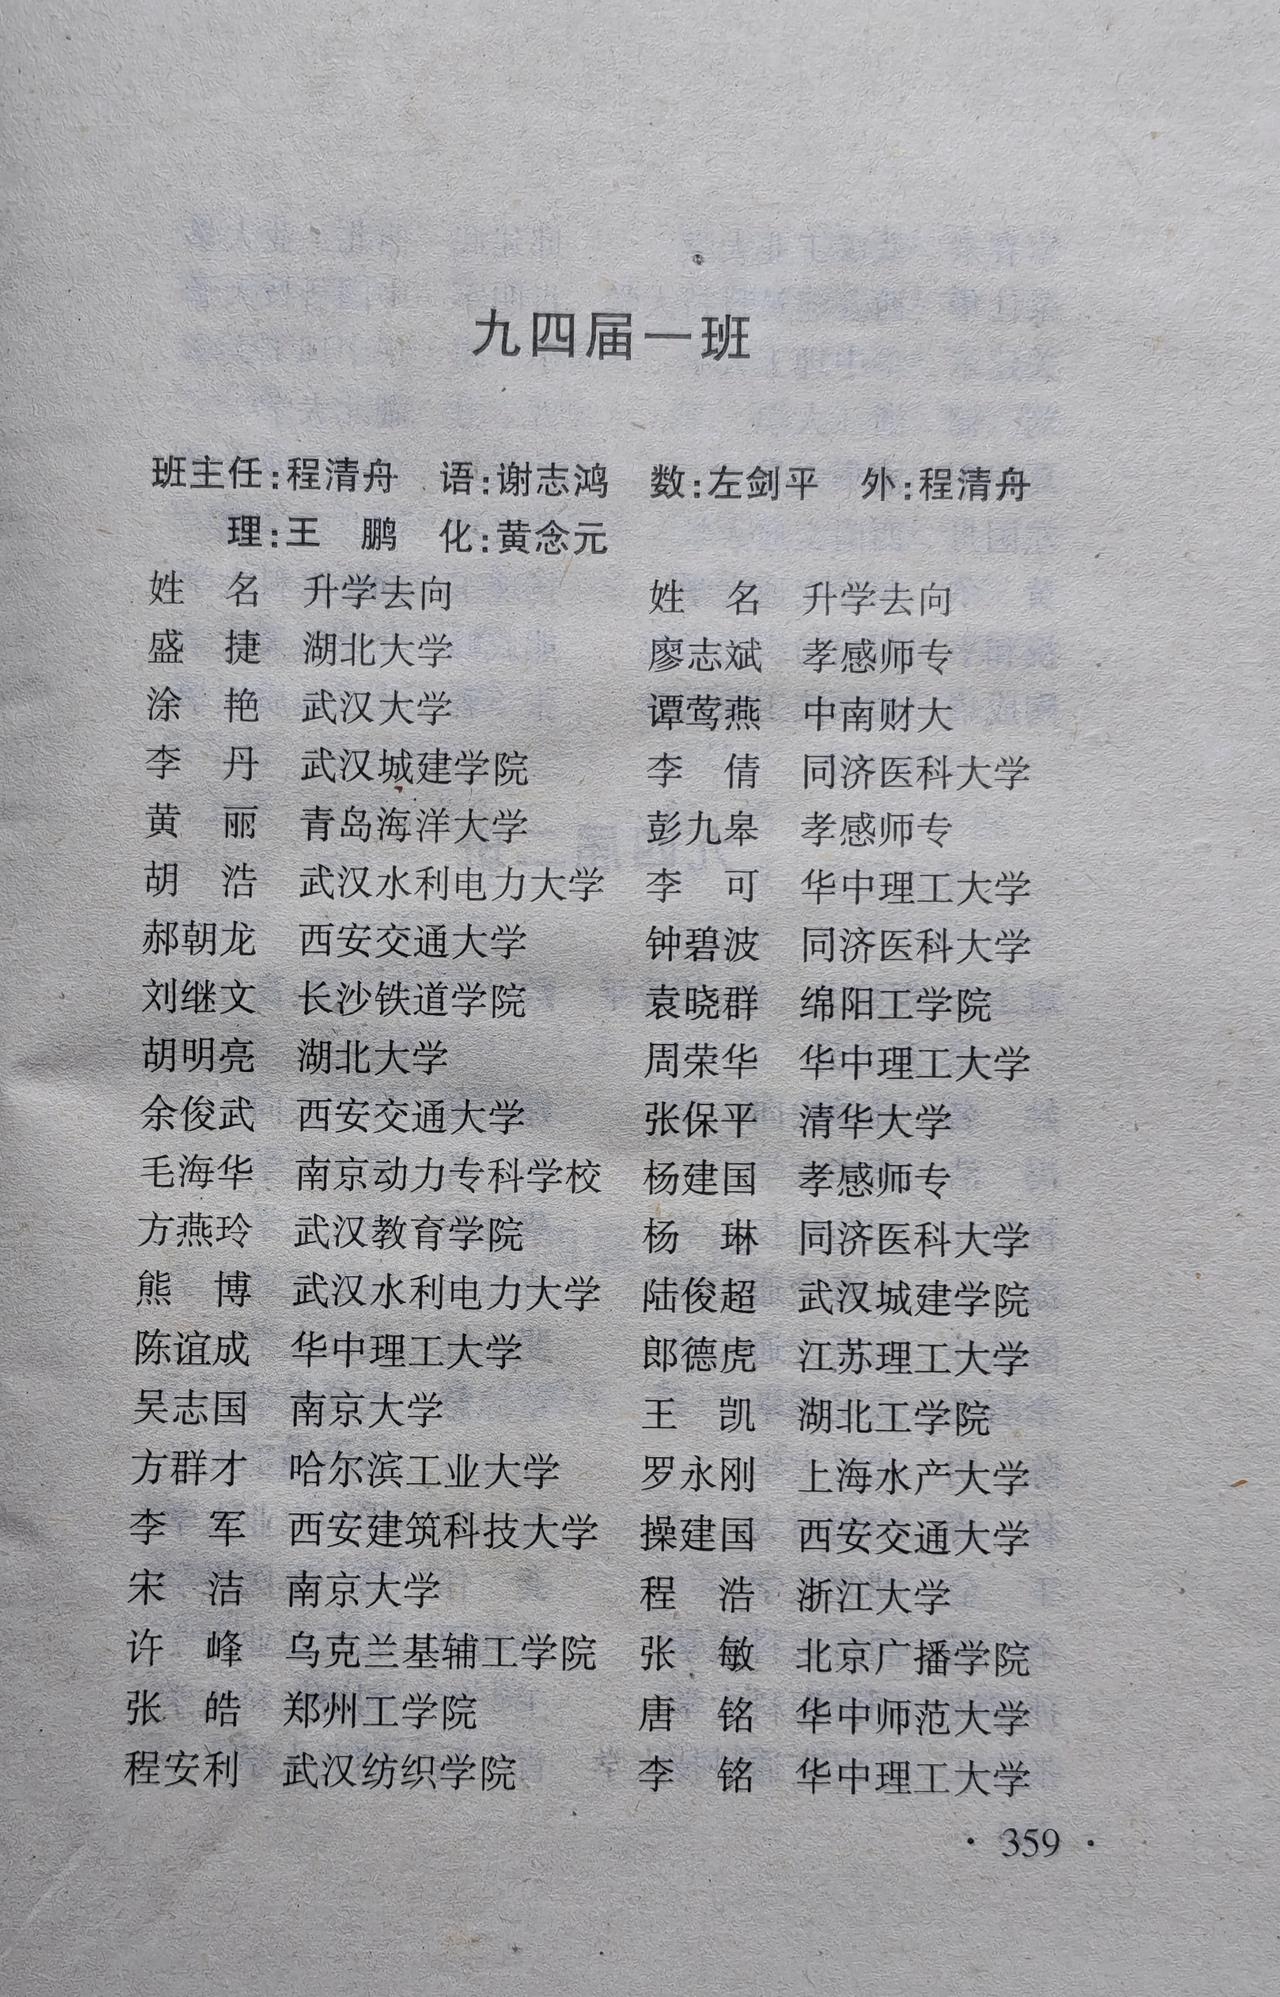 九四届一班
班主任：程清舟　语：谢志鸿　数：左剑平　外：程清舟
理：王　鹏　化：黄念元
姓　名　升学去向　姓　名　升学去向
盛　捷　湖北大学　廖志斌　孝感师专
涂　艳　武汉大学　谭莺燕　中南财大
李　丹　武汉城建学院　李　倩　同济医科大学
黄　丽　青岛海洋大学　彭九皋　孝感师专
胡　浩　武汉水利电力大学　李　可　华中理工大学
郝朝龙　西安交通大学　钟碧波　同济医科大学
刘继文　长沙铁道学院　袁晓群　绵阳工学院
胡明亮　湖北大学　周荣华　华中理工大学
余俊武　西安交通大学　张保平　清华大学
毛海华　南京动力专科学校　杨建国　孝感师专
方燕玲　武汉教育学院　杨　琳　同济医科大学
熊　博　武汉水利电力大学　陆俊超　武汉城建学院
陈谊成　华中理工大学　郎德虎　江苏理工大学
吴志国　南京大学　王　凯　湖北工学院
方群才　哈尔滨工业大学　罗永刚　上海水产大学
李　军　西安建筑科技大学　操建国　西安交通大学
宋　洁　南京大学　程　浩　浙江大学
许　峰　乌克兰基辅工学院　张　敏　北京广播学院
张　皓　郑州工学院　唐　铭　华中师范大学
程安利　武汉纺织学院　李　铭　华中理工大学
· 359 ·